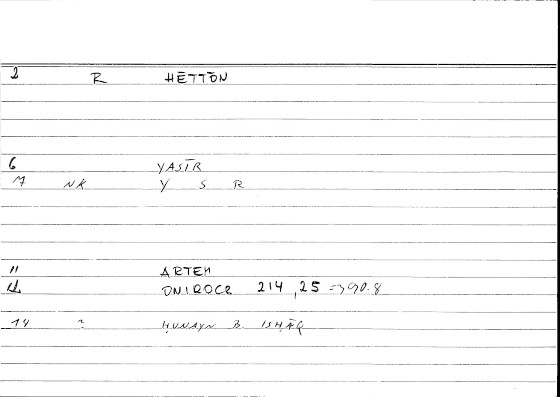 2 R HĒTTŌN
6 YASĪR
7 NK Y S R
11 ARTEM
12 ONIROCR 214,25 → 90.8
14 ~ ḤUNAYN B. ISḤĀQ